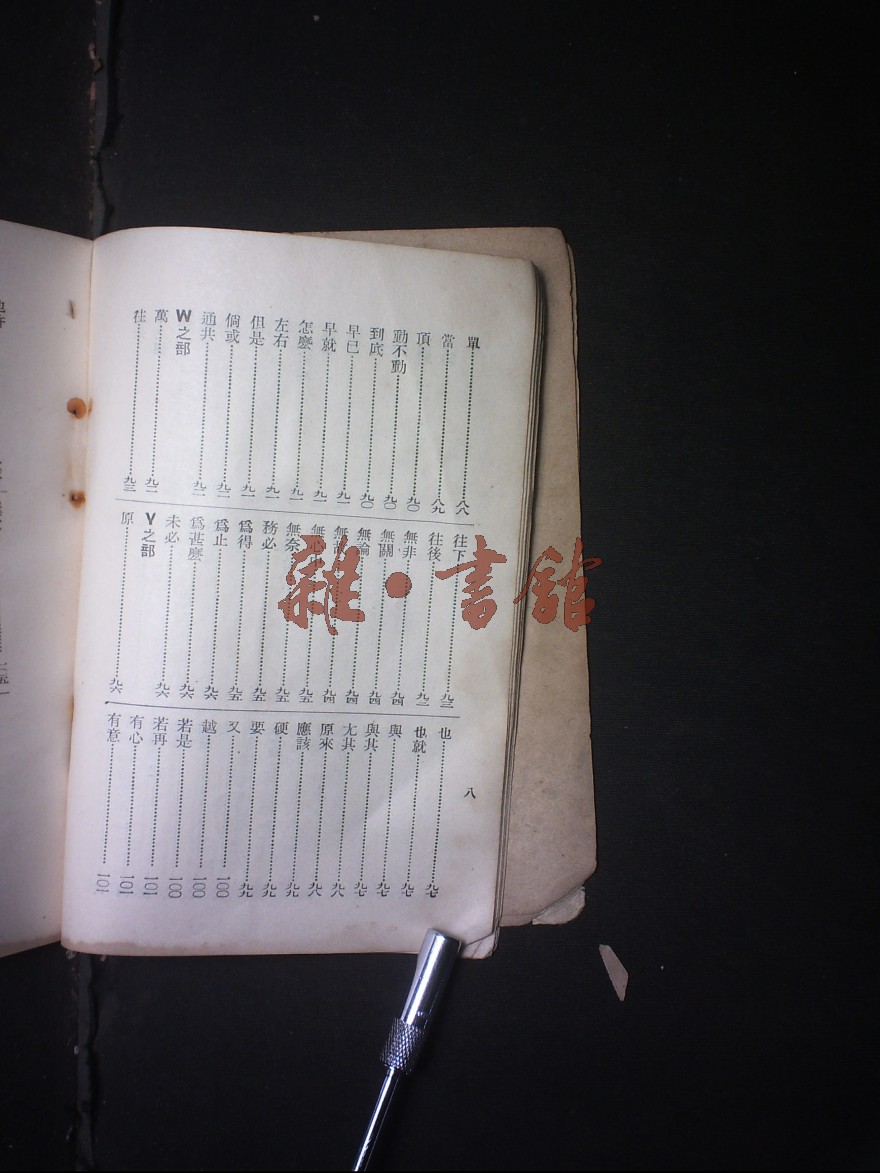 單……八八
當……八九
頂……九〇
動不動……九〇
到底……九〇
早已……九一
早就……九一
怎麽……九一
左右……九一
但是……九一
倘或……九二
通共……九二
W之部
萬……九二
往……九三
往下……九三
往後……九三
無非……九四
無關……九四
無論……九四
無故……九四
無心……九五
無奈……九五
務必……九五
爲得……九五
爲止……九六
爲甚麽……九六
未必……九六
Y之部
原……九六
也……九七
也就……九七
與……九七
與其……九七
尤其……九八
原來……九八
應該……九九
硬……九九
要……九九
又……一〇〇
越……一〇〇
若是……一〇〇
若再……一〇一
有心……一〇一
有意……一〇一
八
雜·書館